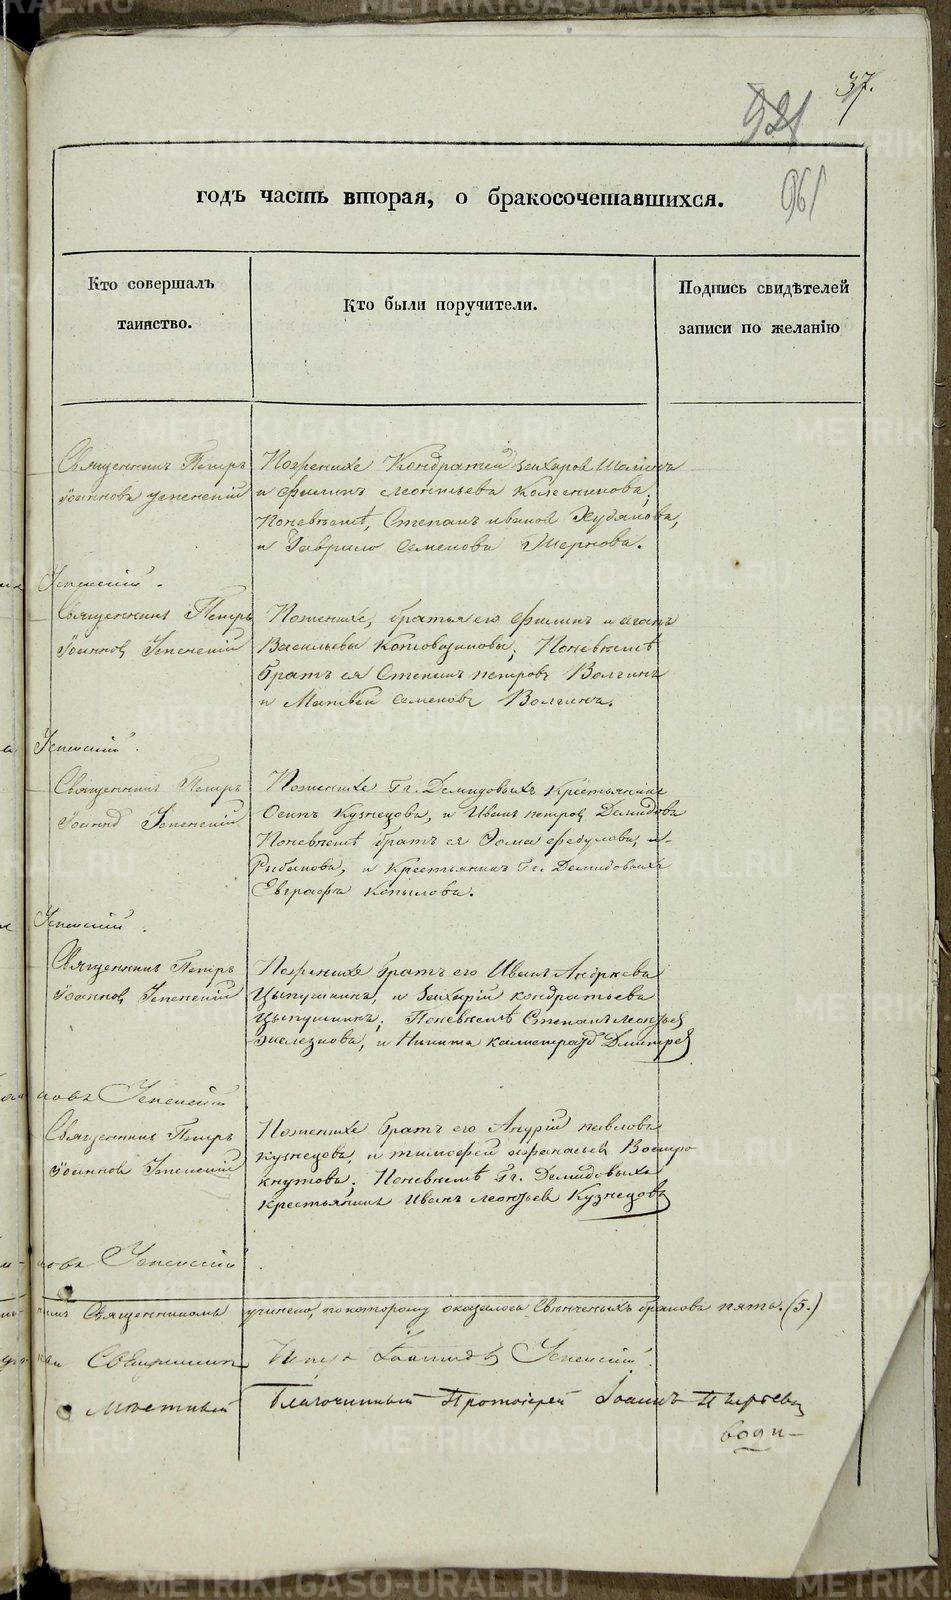 37.
921
961
годъ часть вторая, о бракосочетавшихся.
Кто совершалъ
таинство.
Кто были поручители.
Подпись свидѣтелей
записи по желанію
Священникъ Петръ
Іоанновъ Успенскій
Пожениже Кондратей Захаров
и Филипъ Леонтьевъ Колесниковъ,
Поневѣсте, Степанъ Иванов Худяковъ,
и Гаврило Семеновъ
Успенскій.
Священникъ Петръ
Іоаннов Успенскій
Пожениже, братья его Филипъ и Аганъ
Васильевы Поневѣсте
братъ ея Степанъ Петровъ Волгинъ
и Матвей Семеновъ Волгинъ.
Успенскій.
Священникъ Петръ
Успенскій
Пожениже Гг. Демидовыхъ Крестьяне
Осипъ Кузнецовъ, и Иванъ Петров Демидовъ
Поневѣсте братъ ея Фома Федуловъ
Рыбаковъ, и Крестьянинъ Гг. Демидовыхъ
Евграфъ Копыловъ.
Успенскій.
Священникъ Петръ
Іоаннов Успенскій
Пожениже братъ его Иванъ Андреевъ
Цыпушкинъ, и Захарій Кондратьевъ
Цыпушкинъ; Поневѣсте Степанъ Леонтьев
Железновъ, и Никита Калистратов
новъ Успенскій
Священникъ Петръ
Іоаннов Успенскій
Пожениже братъ его Андрій Павловъ
Кузнецовъ, и Тимофей Афанасьев Востро
кнутовъ; Поневѣсте Гг. Демидовыхъ
крестьянинъ Иванъ Леонтьев Кузнецовъ
новъ Успенскій
Священникомъ учинено, по которому оказалось Свѣнченыхъ браковъ пять. (5.)
Священникъ Петръ Іоаннов Успенскій.
Мѣстный Благочинный Протоіерей Іоаннъ
METRIKI.GASO-URAL.RU